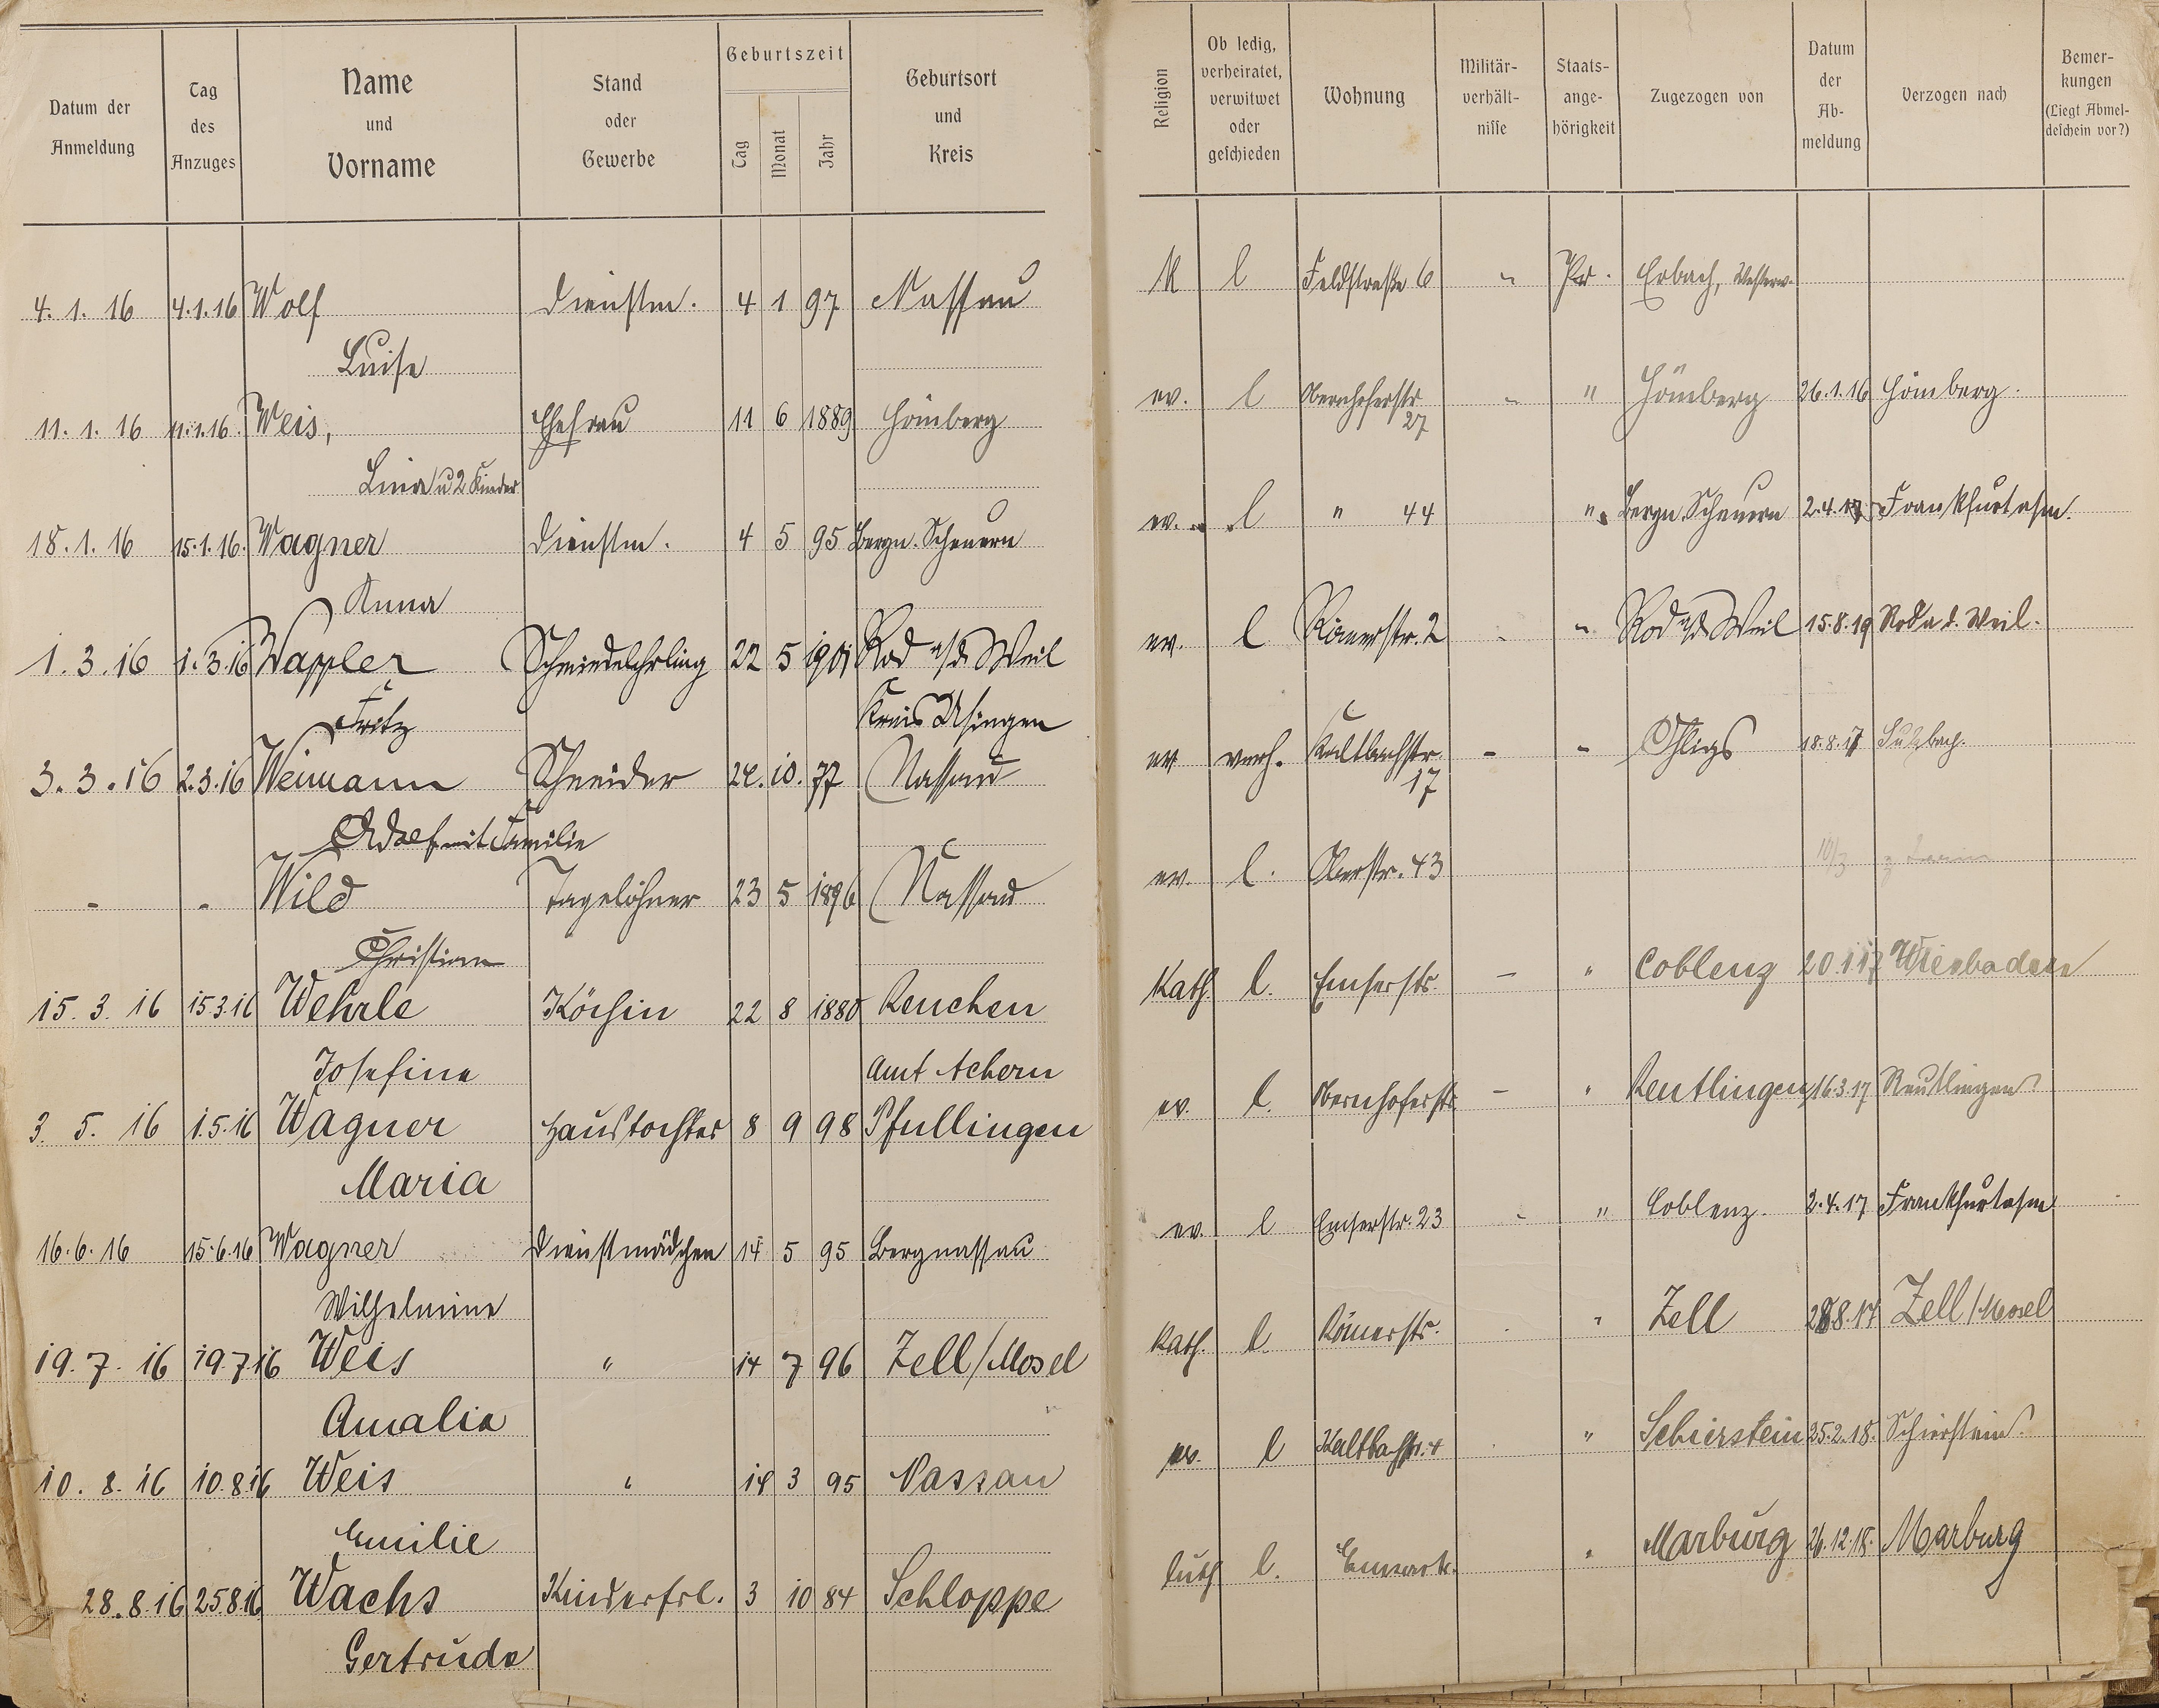 Datum der Anmeldung
Tag des Anzuges
Name und Vorname
Stand oder Gewerbe
Geburtszeit
Tag Monat Jahr
Geburtsort und Kreis
Religion
Ob ledig, verheiratet, verwitwet oder geschieden
Wohnung
Militär-verhält-nisse
Staats-ange-hörigkeit
Zugezogen von
Datum der Ab-meldung
Verzogen nach
Bemer-kungen (Liegt Abmel-deschein vor?)
4. 1. 16 4.1.16 Wolf Dienstm. 4 1 97 Nassau K l Feldstraße 6 " Pr. Erbach, Westerw.
Luise
11. 1. 16 11.1.16. Weis, Ehefrau 11 6 1889 Hömberg ev. l Obernhoferstr. 27 " " Hömberg 26.1.16 Hömberg.
Lina u 2 Kinder
18. 1. 16 15.1.16. Wagner Dienstm. 4 5 95 Bergn. Scheuern ev. l " 44 " Bergn. Scheuern 2.4.17 Frankfurt a/m.
Anna
1. 3. 16 1.3.16 Wappler Schmiedelehrling 22 5 1901 Rod a/d Weil ev. l Römerstr. 2 " Rod a/d Weil 15.8.19 Rod a. d. Weil.
Fritz Kreis Usingen
3. 3. 16 2.3.16 Weimann Schneider 24. 10. 77 Nassau ev verh. Kaltbachstr. 17 - " Ohligs 18.8.17 Sulzbach.
Adolf mit Familie
- - Wild Tagelöhner 23 5 1896 Nassau ev. l. Oberstr. 43 10/3
Christian
15. 3. 16 15.3.16 Wehrle Köchin 22 8 1880 Renchen Kath. l. Emserstr. - " Coblenz 20.1.17 Wiesbaden
Josefine Amt Achern
3. 5. 16 1.5.16 Wagner Haustochter 8 9 98 Pfullingen ev. l. Obernhoferstr. - " Reutlingen 16.3.17 Reutlingen
Maria
16. 6. 16 15.6.16 Wagner Dienstmädchen 14 5 95 Bergnassau ev. l Emserstr. 23 - " Coblenz. 2.4.17 Frankfurt a/m
Wilhelmine
19. 7. 16 19.7.16 Weis " 14 7 96 Zell/Mosel Kath. l. Römerstr. " Zell 28.8.17 Zell/Mosel
Amalia
10. 8. 16 10.8.16 Weis " 14 3 95 Nassau ev. l Kaltbachstr. 4 " Schierstein 25.2.18. Schierstein
Emilie
28. 8. 16 25.8.16 Wachs Kinderfrl. 3 10 84 Schloppe luth l. Emserstr. " Marburg 26.12.18. Marburg
Gertruda